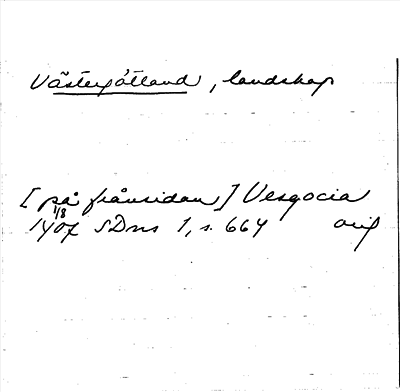 Västergötland, landskap
[på frånsidan] Vesgocia
1/8
1407 SDns 1, s. 664 orig